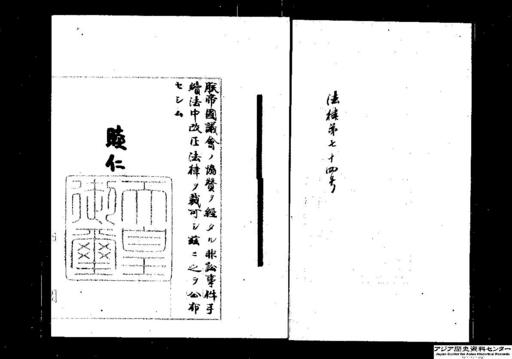 法律第七十四号
朕帝國議會ノ協賛ヲ經タル非訟事件手
續法中改正法律ヲ裁可シ茲ニ之ヲ公布
セシム
睦仁
天皇
御璽
アジア歴史資料センター
Japan Center for Asian Historical Records